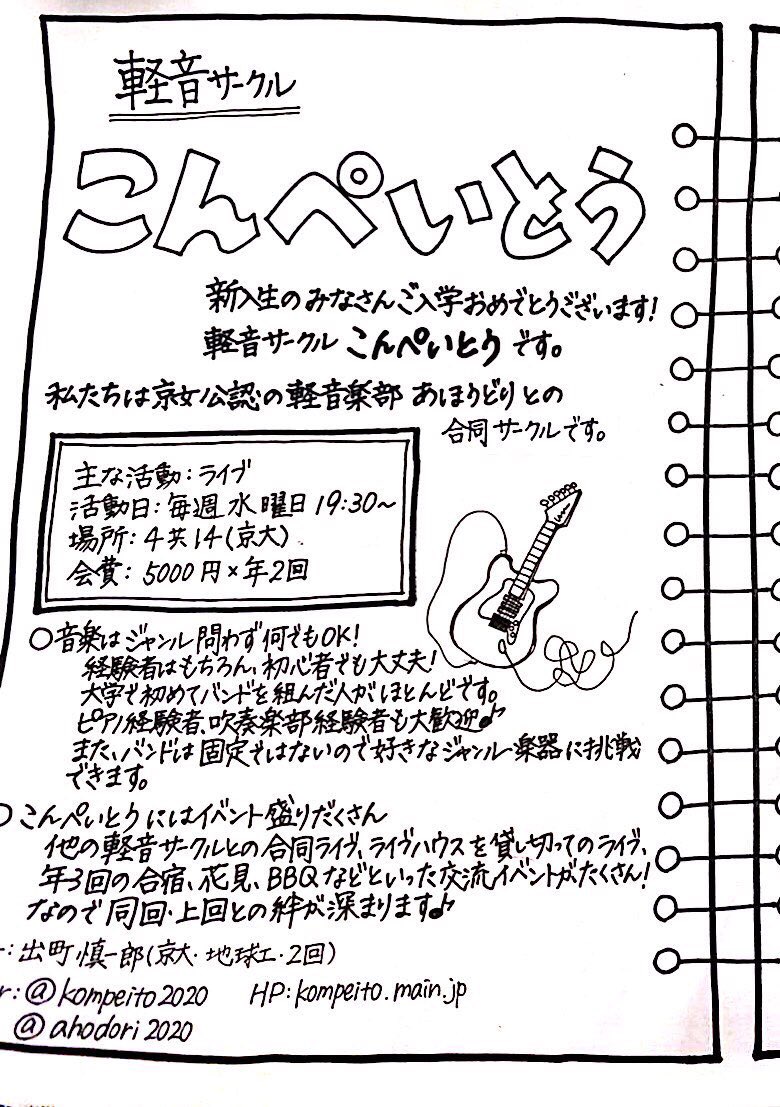 軽音サークル
こんぺいとう
新入生のみなさんご入学おめでとうございます!
軽音サークル こんぺいとう です。
私たちは京女公認の軽音楽部 あほうどりとの
合同サークルです。
主な活動:ライブ
活動日:毎週水曜日19:30~
場所:4共14(京大)
会費:5000円×年2回
○音楽はジャンル問わず何でもOK!
経験者はもちろん、初心者でも大丈夫!
大学で初めてバンドを組んだ人がほとんどです。
ピアノ経験者、吹奏楽部経験者も大歓迎♪
また、バンドは固定ではないので好きなジャンル・楽器に挑戦
できます。
○こんぺいとうにはイベント盛りだくさん
他の軽音サークルとの合同ライブ、ライブハウスを貸し切ってのライブ、
年3回の合宿、花見、BBQなどといった交流イベントがたくさん!
なので同回・上回との絆が深まります♪
ー:出町慎一郎(京大・地球工・2回)
r:@kompeito2020 HP:kompeito.main.jp
@ahodori2020